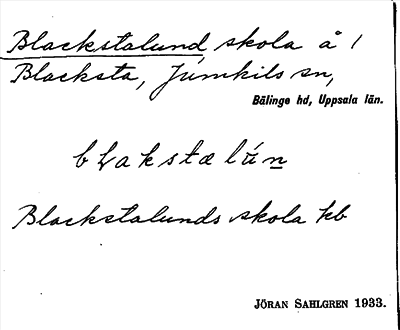 Blackstalund, skola å 1
Blacksta, Jumkils sn,
Bälinge hd, Uppsala län.
blakstælún
Blackstalunds skola kb
JÖRAN SAHLGREN 1933.